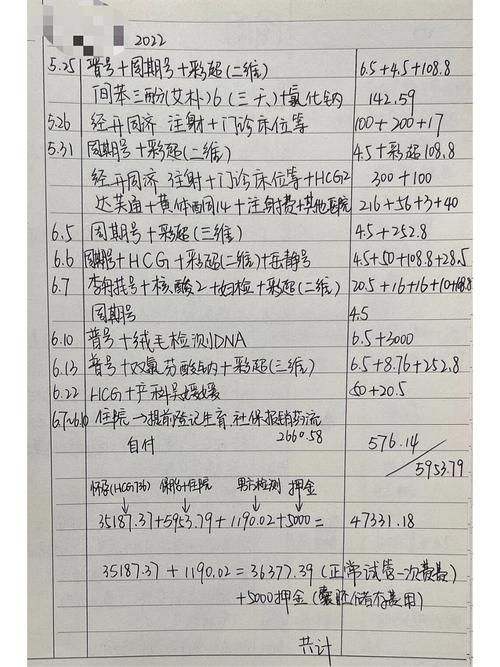 2022
5.25 普号+周期号+彩超(二维) 6.5+4.5+108.8
间苯三酚(艾朴)6(三天)+氯化钠 142.59
5.26 经开同济 注射+门诊床位等 100+200+17
5.31 周期号+彩超(二维) 4.5+彩超108.8
经开同济 注射+门诊床位等+HCG2 300+100
达芙通+黄体酮14+注射费+其他医院 216+56+3+40
6.5 周期号+彩超(三维) 4.5+252.8
6.6 周期号+HCG+彩超(二维)+岳静号 4.5+50+108.8+28.5
6.7 李舟挂号+核酸2+妇检+彩超(二维) 20.5+16+16+10+108.8
周期号 4.5
6.10 普号+绒毛检测DNA 6.5+3000
6.13 普号+双氯芬酸钠+彩超(三维) 6.5+8.76+252.8
6.22 HCG+产科吴媛媛 50+20.5
6.7~6.10 住院→提前登记生育 社保报销药流
自付 2660.58 576.14
/5953.79
怀孕(HCG736) 保胎+住院 男方检测 押金
35187.37+5953.79+1190.02+5000= 47331.18
35187.37+1190.02=36377.39(正常试管一次费用)
+5000押金(囊胚储存费用)
共计